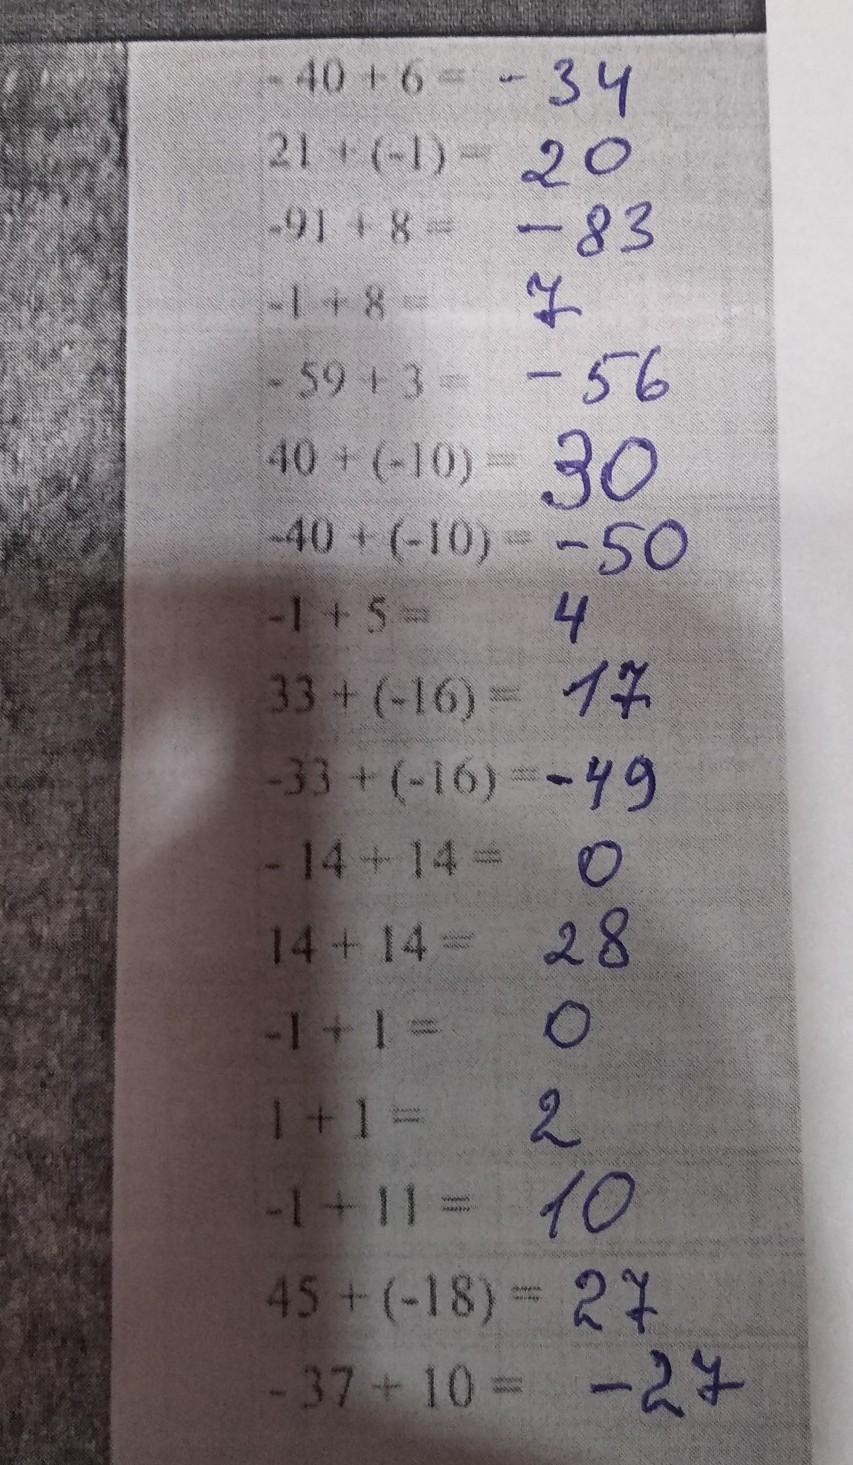 - 40 + 6 = - 34
21 + (-1) = 20
-91 + 8 = - 83
-1 + 8 = 7
- 59 + 3 = - 56
40 + (-10) = 30
-40 + (-10) = -50
-1 + 5 = 4
33 + (-16) = 17
-33 + (-16) = -49
- 14 + 14 = 0
14 + 14 = 28
-1 + 1 = 0
1 + 1 = 2
-1 + 11 = 10
45 + (-18) = 27
- 37 + 10 = -27